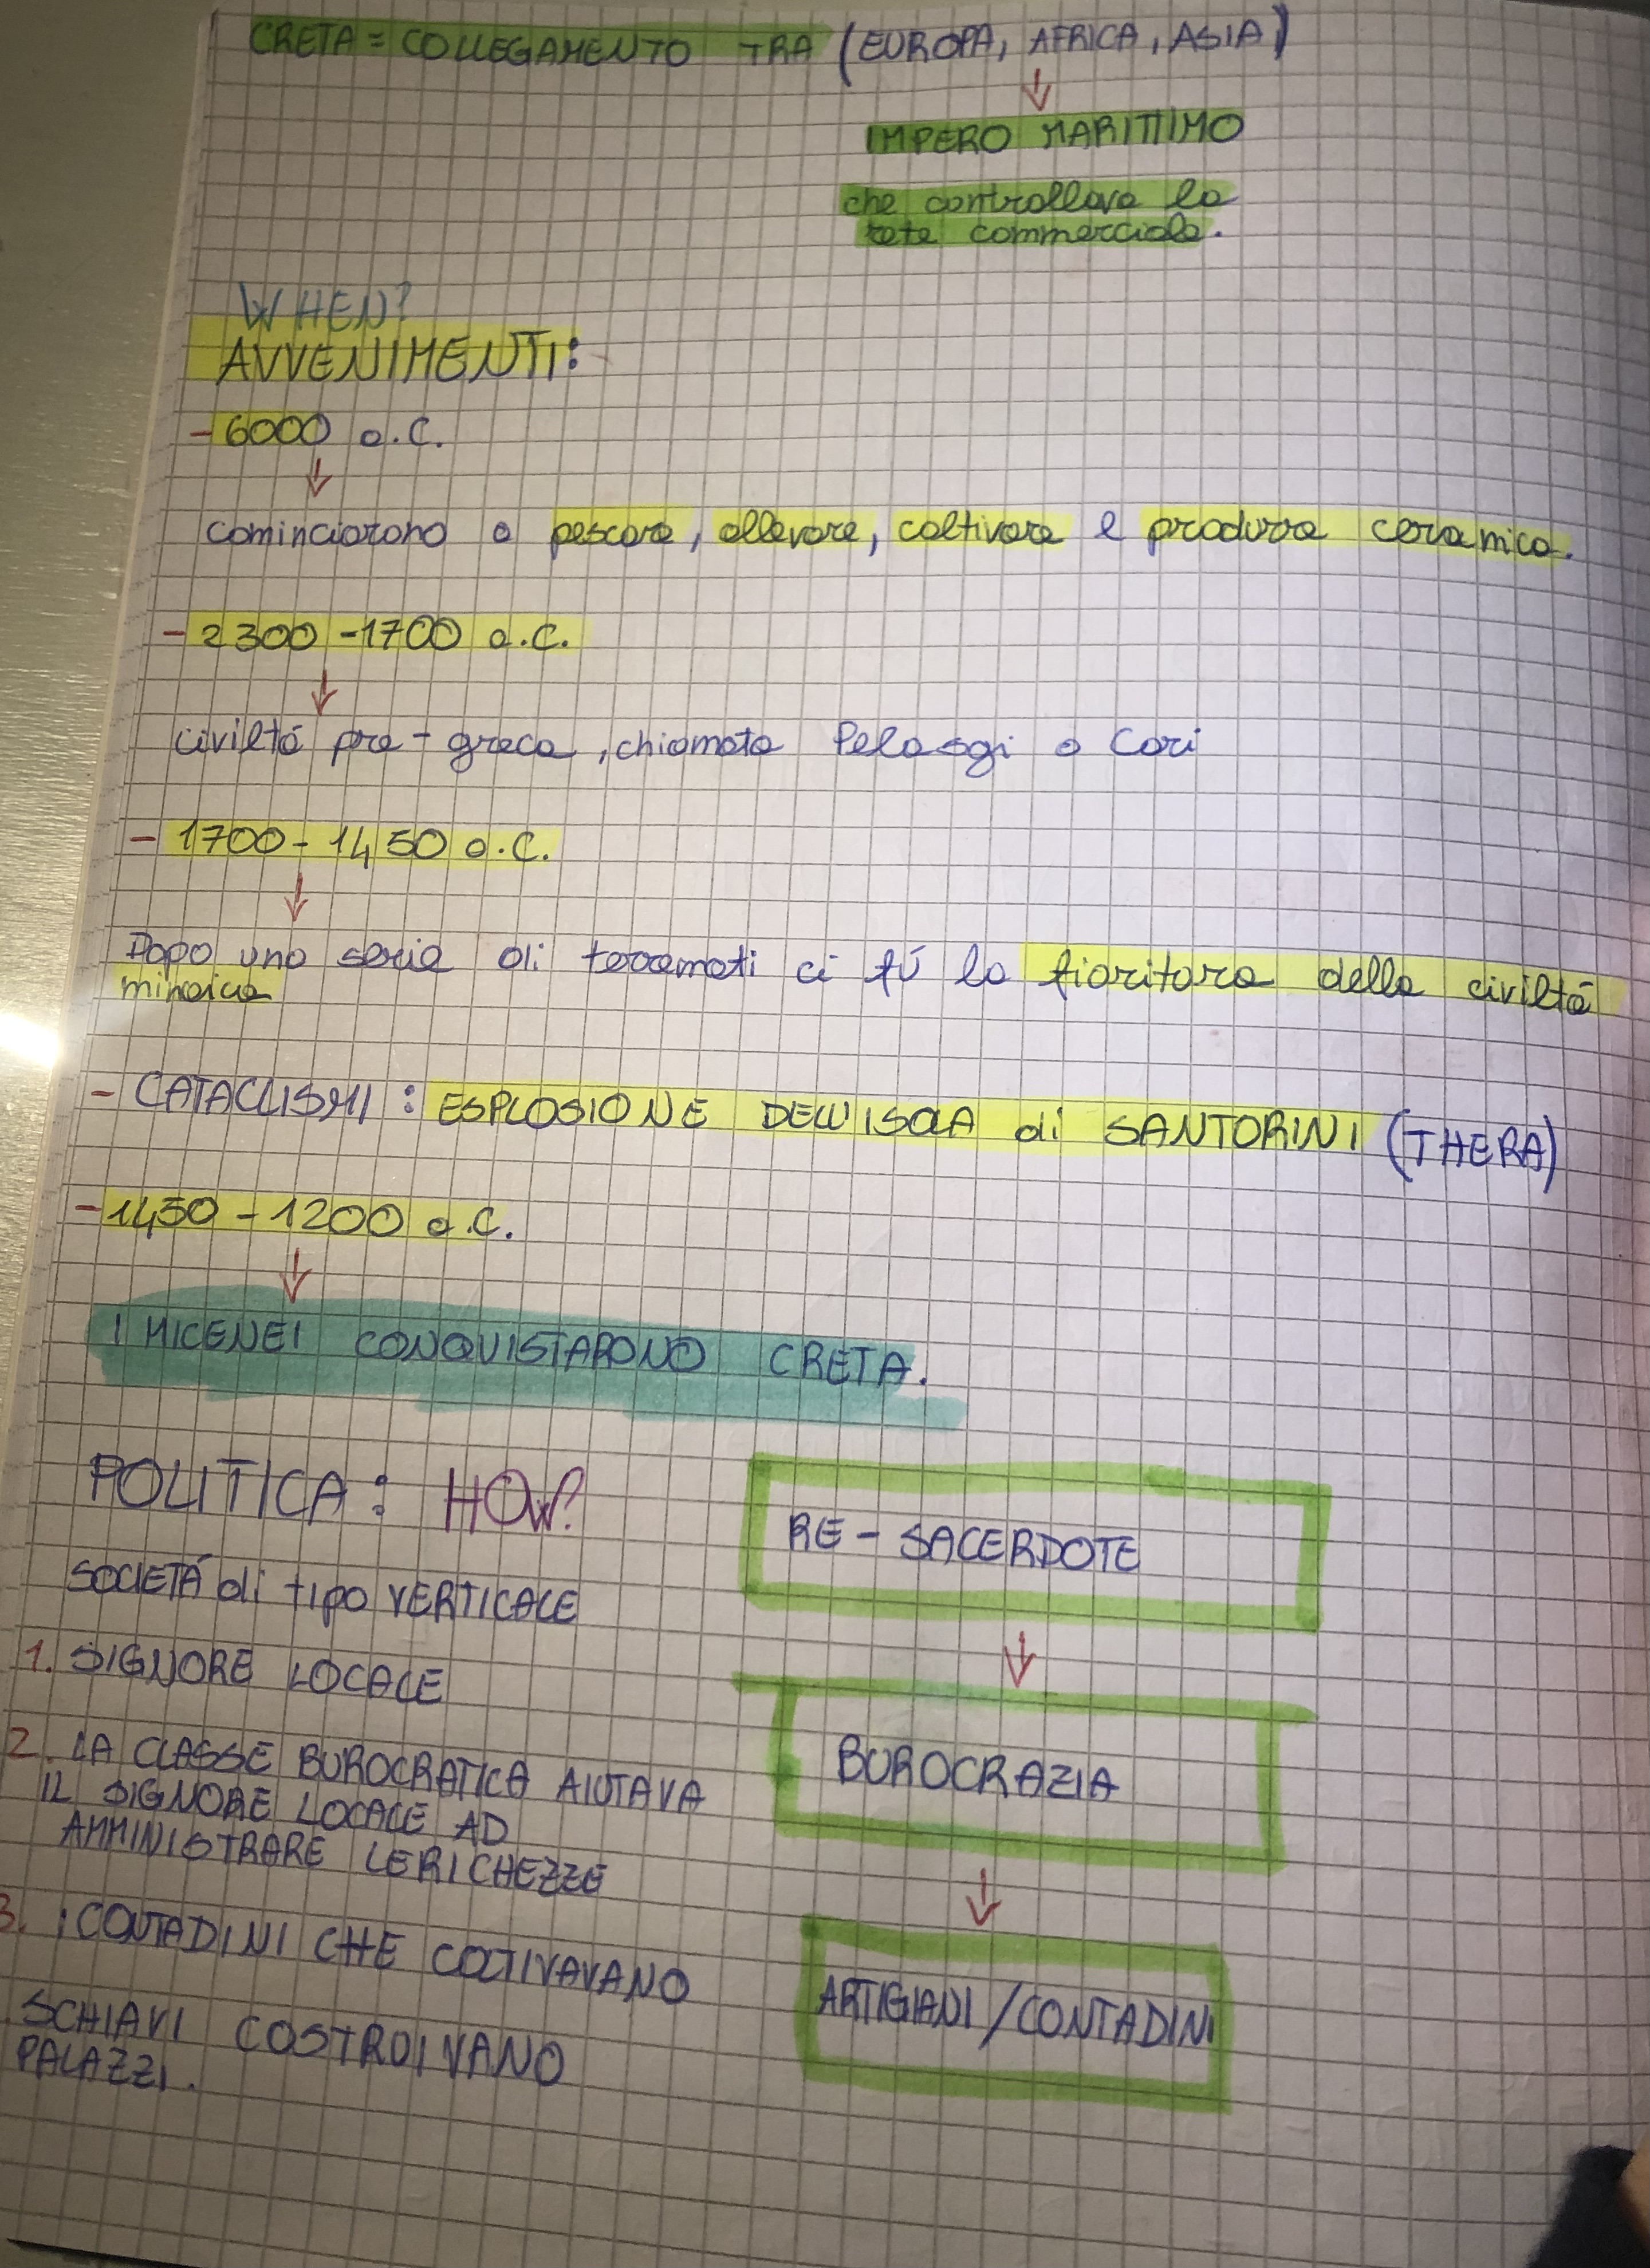 CRETA = COLLEGAMENTO TRA (EUROPA, AFRICA, ASIA)
IMPERO MARITTIMO
che controllava la
rete commerciale.
WHEN?
AVVENIMENTI:
- 6000 a.C.
cominciarono a pescare, allevare, coltivare e produrre ceramica.
- 2300 - 1700 a.C.
civiltá pre-greca, chiamata Pelasgi o Cari
- 1700 - 1450 a.C.
Dopo una serie di terremoti ci fú la fioritura della civiltá
minoica
- CATACLISMI : ESPLOSIONE DELL'ISOLA di SANTORINI (THERA)
- 1450 - 1200 a.C.
I MICENEI CONQUISTARONO CRETA.
POLITICA: HOW?
SOCIETÁ di tipo VERTICALE
1. SIGNORE LOCALE
2. LA CLASSE BUROCRATICA AIUTAVA
IL SIGNORE LOCALE AD
AMMINISTRARE LE RICHEZZE
3. i CONTADINI CHE COLTIVAVANO
SCHIAVI COSTROIVANO
PALAZZI.
RE - SACERDOTE
BUROCRAZIA
ARTIGIANI / CONTADINI